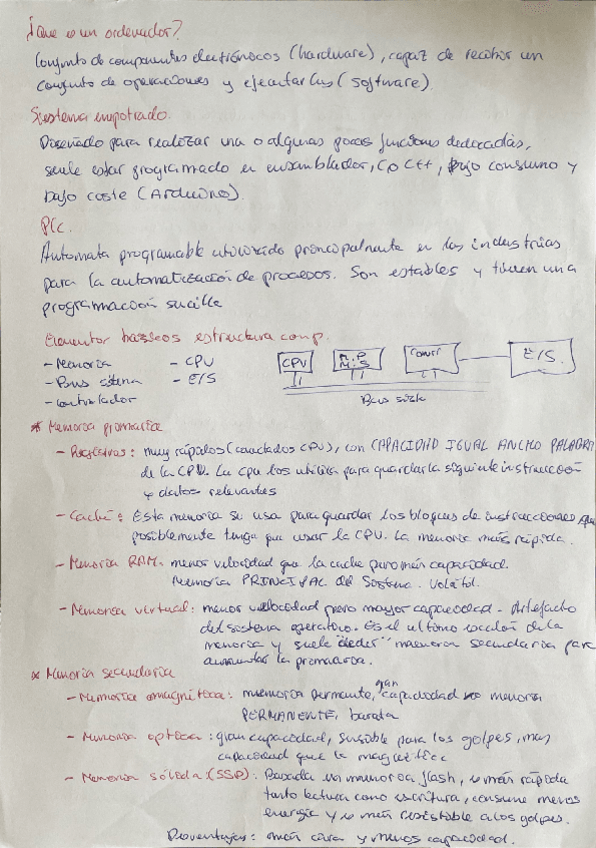 ¿Que es un ordenador?
Conjunto de componentes electrónicos (hardware), capaz de recibir un
conjunto de operaciones y ejecutarlas (software).
Sistema empotrado.
Diseñado para realizar una o algunas pocas funciones dedicadas,
suele estar programado en ensamblador, C o C++, Bajo consumo y
bajo coste (Arduino).
Plc.
Automata programable utilizado principalmente en las industrias
para la automatización de procesos. Son estables y tienen una
programación sencilla
Elementos basicos estructura comp.
- Memoria - CPU
- Bus sistema - E/S
- Controlador
CPU M.P M.S Contr E/S.
Bus sist
* Memoria primaria
- Registros: muy rápidos (conectados CPU), con CAPACIDAD IGUAL ANCHO PALABRA
de la CPU. La cpu los utiliza para guardar la siguiente instrucción
y datos relevantes
- Caché: Esta memoria se usa para guardar los bloques de instrucciones que
posiblemente tenga que usar la CPU. La memoria más rápida.
- Memoria RAM: menos velocidad que la cache pero más capacidad.
Memoria PRINCIPAL del Sistema. Volátil.
- Memoria virtual: menos velocidad pero mayor capacidad. Artefacto
del sistema operativo. Es el ultimo escalón de la
memoria y suele "ceder" memoria secundaria para
aumentar la primaria.
* Memoria secundaria
- Memoria magnética: memoria permante, gran capacidad memoria
PERMANENTE, barata
- Memoria optica: gran capacidad, sensible para los golpes, mas
capacidad que la magnetica
- Memoria sólida (SSD): Basada en memoria flash, es más rápida
tanto lectura como escritura, consume menos
energía y es más resistible a los golpes.
Desventajas: más cara y menos capacidad.